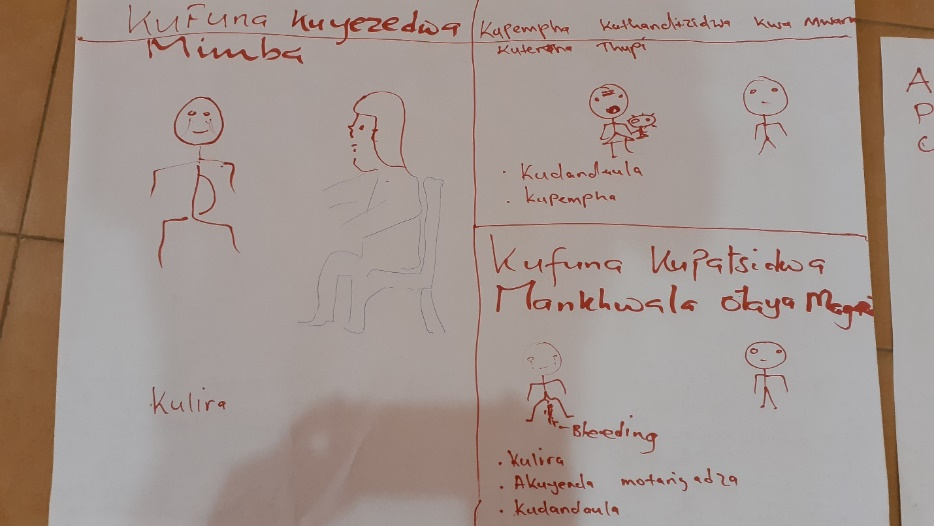 KuFuna Kuyezedwa
Mimba
Kulira
Kupempha Kuthanditzidwa Kwa Mwana
Kutentha Thupi
· Kudandaula
· Kupempha
Kufuna Kupatsidwa
Mankhwala otaya Magazi
Bleeding
· Kulira
· Akuyenda motangadza
· Kudandaula
A
P
C